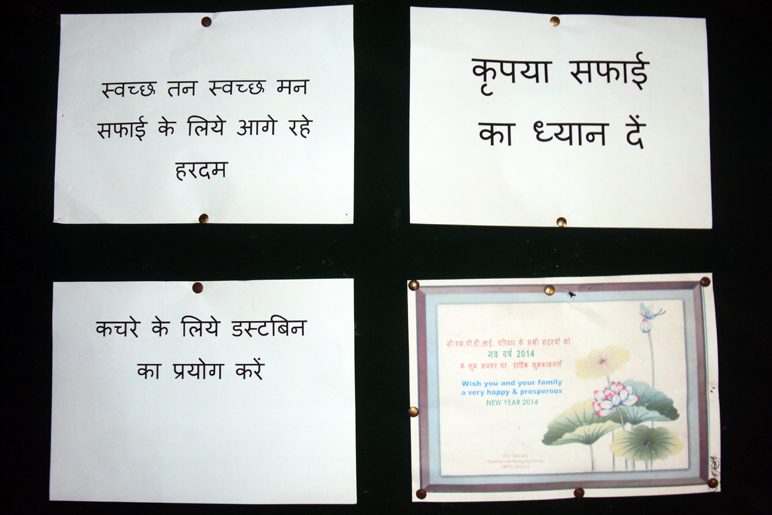 स्वच्छ तन स्वच्छ मन
सफाई के लिये आगे रहे
हरदम
कृपया सफाई
का ध्यान दें
कचरे के लिये डस्टबिन
का प्रयोग करें
सी.एम.पी.डी.आई. परिवार के सभी सदस्यों को
नव वर्ष 2014
के शुभ अवसर पर हार्दिक शुभकामनाएँ
Wish you and your family
a very happy & prosperous
NEW YEAR 2014